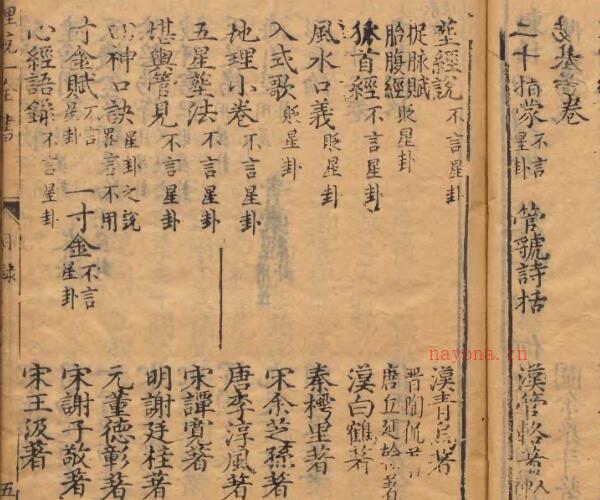 卷
二十指蒙 不言星卦 管虢詩括 漢管輅著
葬經說 不言星卦 漢青烏著
捉脉賦
胎腹經 貶星卦 唐丘延翰著
狐首經 不言星卦 漢白鶴著
風水口義 貶星卦 秦樗里著
入式歌 貶星卦 宋余芝孫著
地理小卷 不言星卦 唐李淳風著
五星葬法 不言星卦 宋譚寬著
堪輿管見 不言星卦 明謝廷柱著
神口訣 星卦之說 置言不用 元董德彰著
寸金賦 不言星卦 一寸金 不言星卦 宋謝子敬著
心經語錄 不言星卦 宋王伋著
理說一全書
目錄
五
nayona.cn